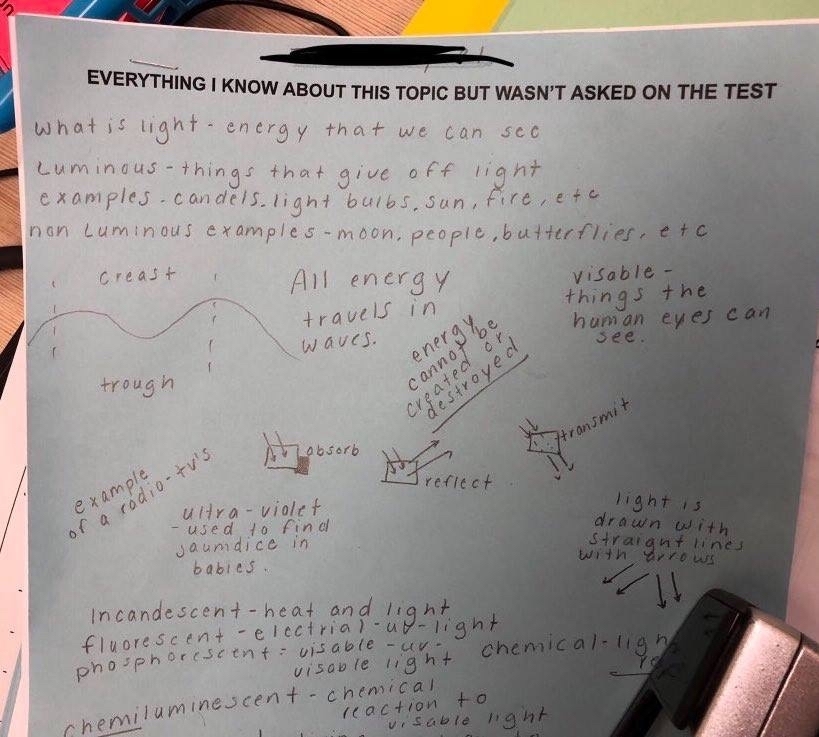 EVERYTHING I KNOW ABOUT THIS TOPIC BUT WASN'T ASKED ON THE TEST
what is light - energy that we can see
Luminous - things that give off light
examples - candels. light bulbs, sun, fire, etc
non Luminous examples - moon, people, butterflies, etc
creast
trough
All energy
travels in
waves.
energy
cannot be
created or
destroyed
visable -
things the
human eyes can
see.
example
of a radio - tv's
absorb
reflect
transmit
ultra - violet
- used to find
jaumdice in
babies.
light is
drawn with
straight lines
with arrows
Incandescent - heat and light
fluorescent - electrial - uv - light
phosphorescent = visable - uv -
visable light
chemical - ligh
chemiluminescent - chemical
reaction to
visable light